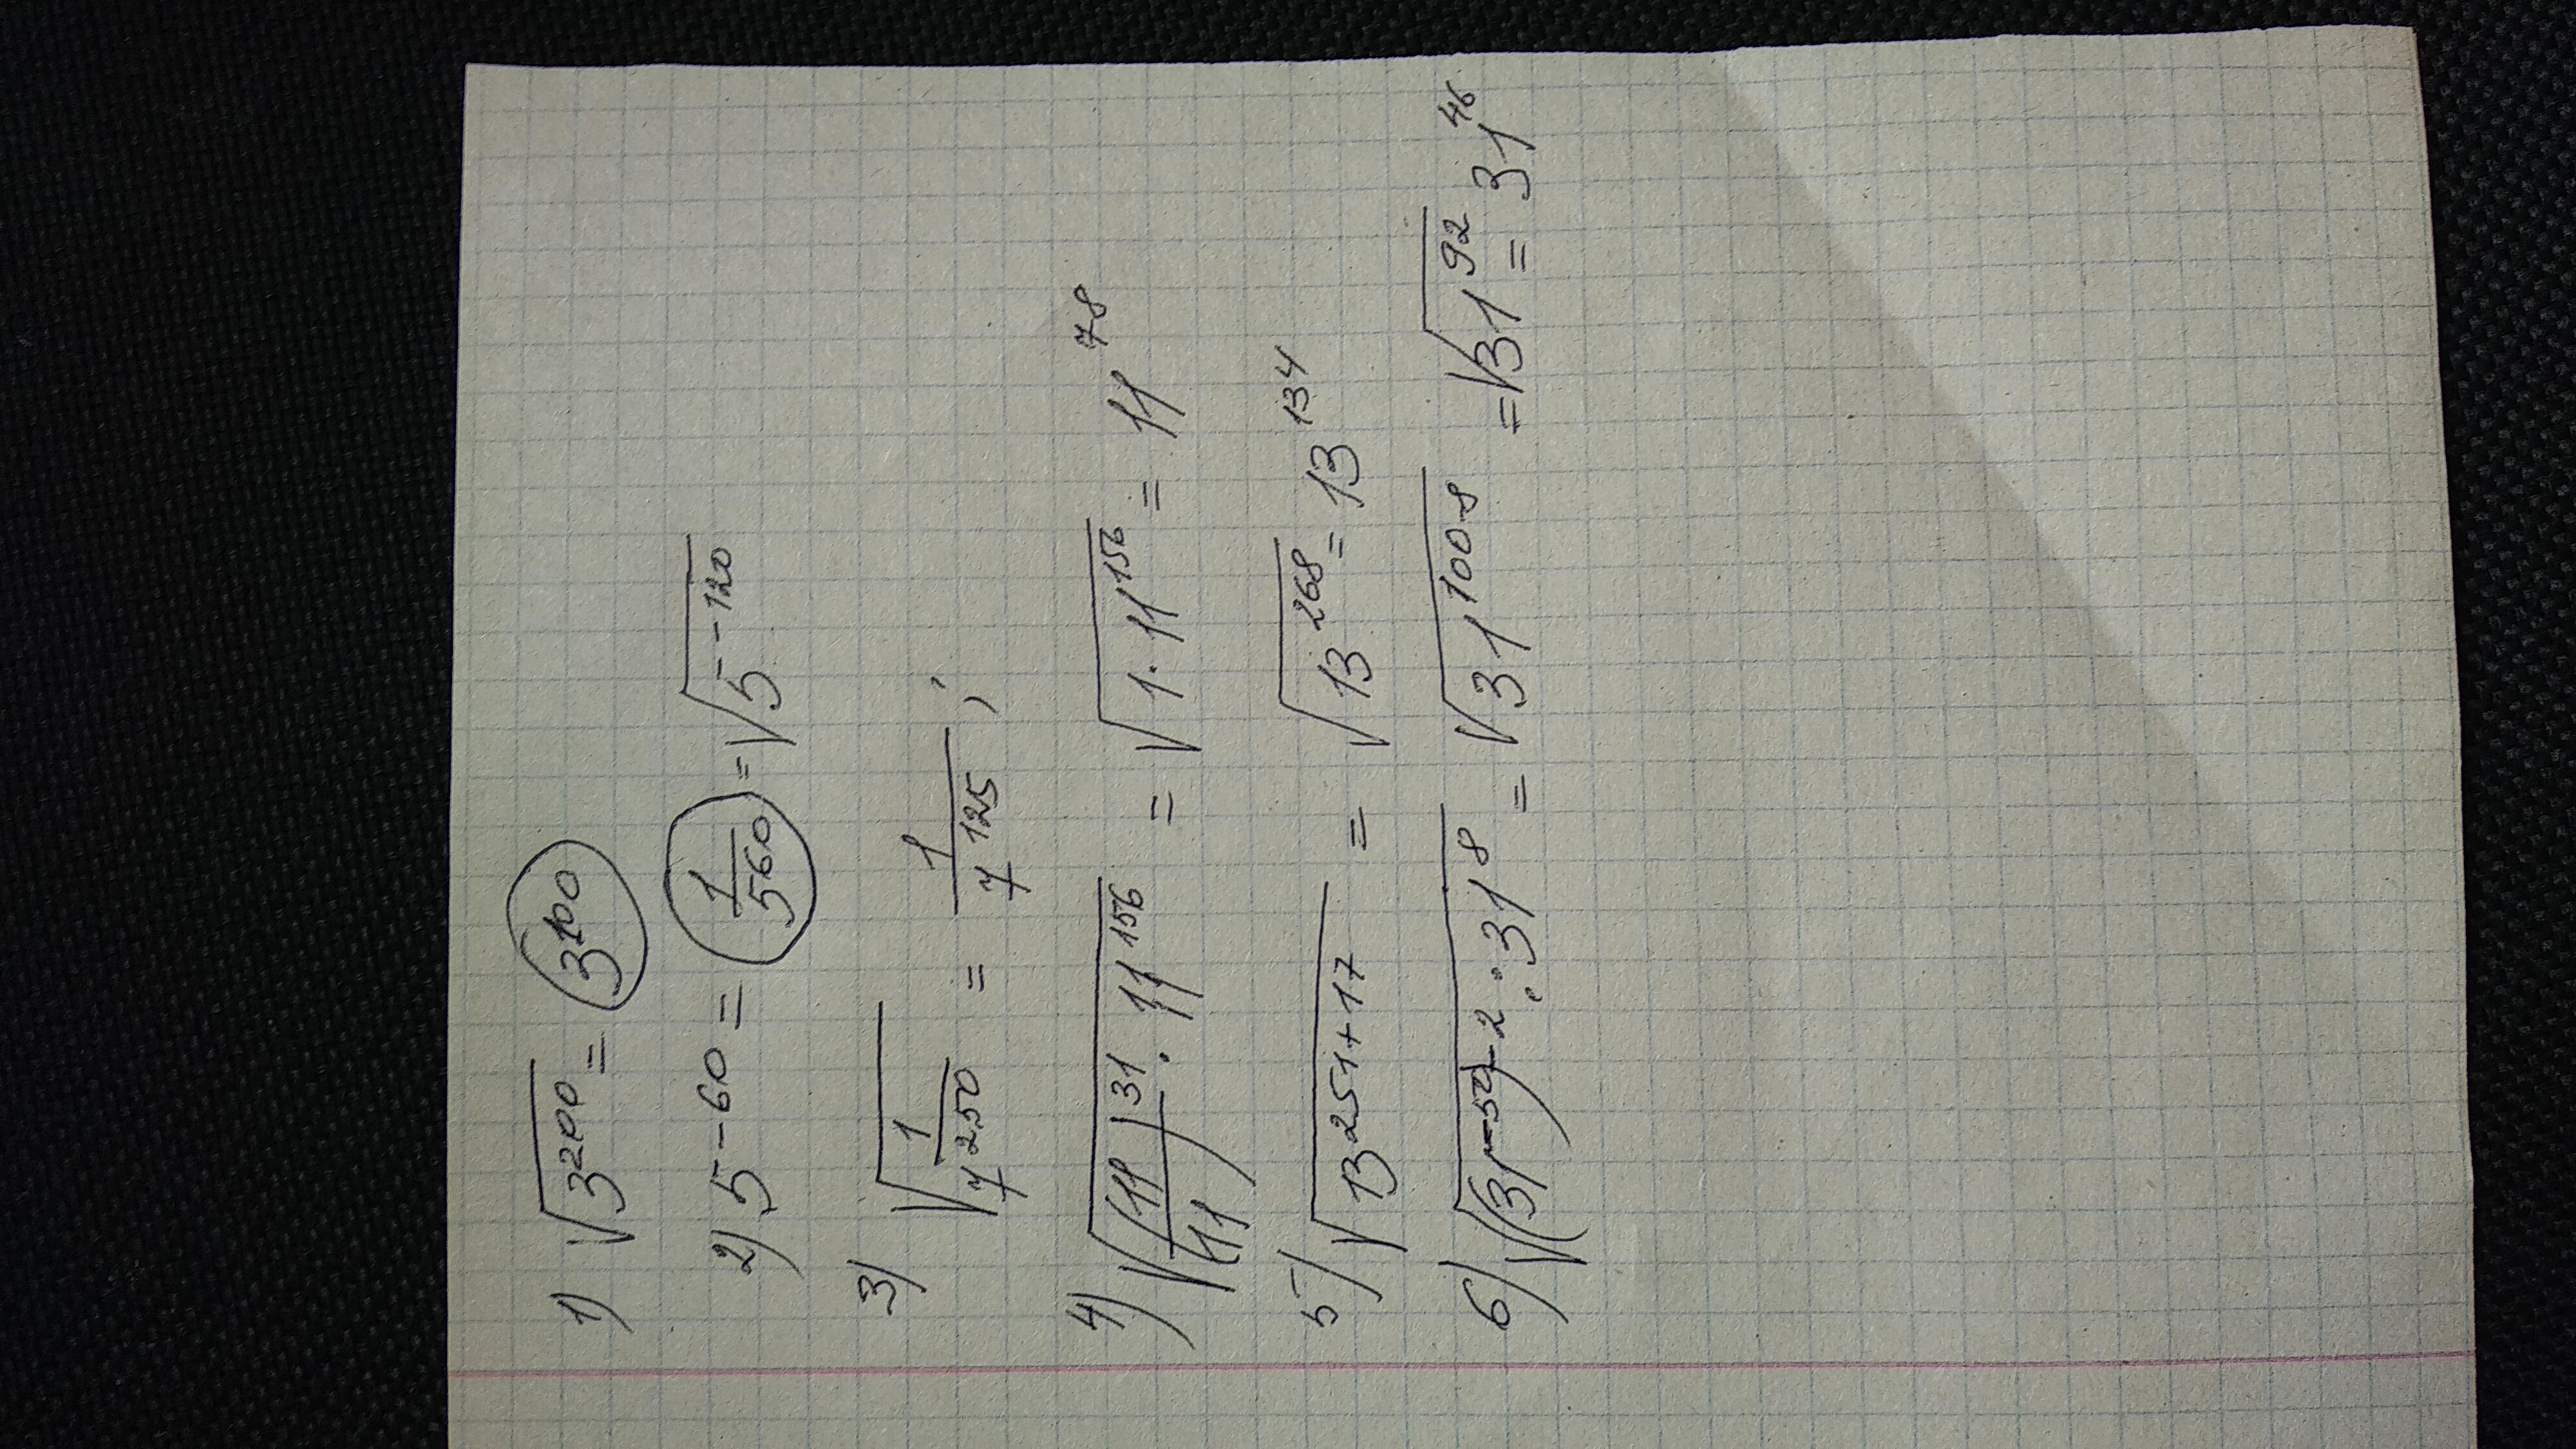 1) √3²⁰⁰ = 3¹⁰⁰
2) 5⁻⁶⁰ = 1/5⁶⁰ = √5⁻¹²⁰
3) √(1/7²⁵⁰) = 1/7¹²⁵ ;
4) √((11/11)³¹ · 11¹⁵⁶) = √(1 · 11¹⁵⁶) = 11⁷⁸
5) √13²⁵¹⁺¹⁷ = √13²⁶⁸ = 13¹³⁴
6) √((31⁻⁵⁰)⁻² : 31⁸) = √31¹⁰⁰⁻⁸ = √31⁹² = 31⁴⁶